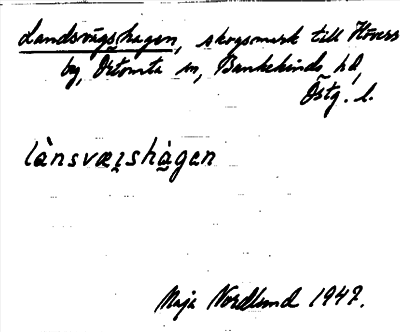 Landsvägshagen, skogsmark till Hövers
by, Örtomta sn, Bankekinds hd,
Östg. l.
lànsvæɪshàgen
Maja Nordlund 1947.